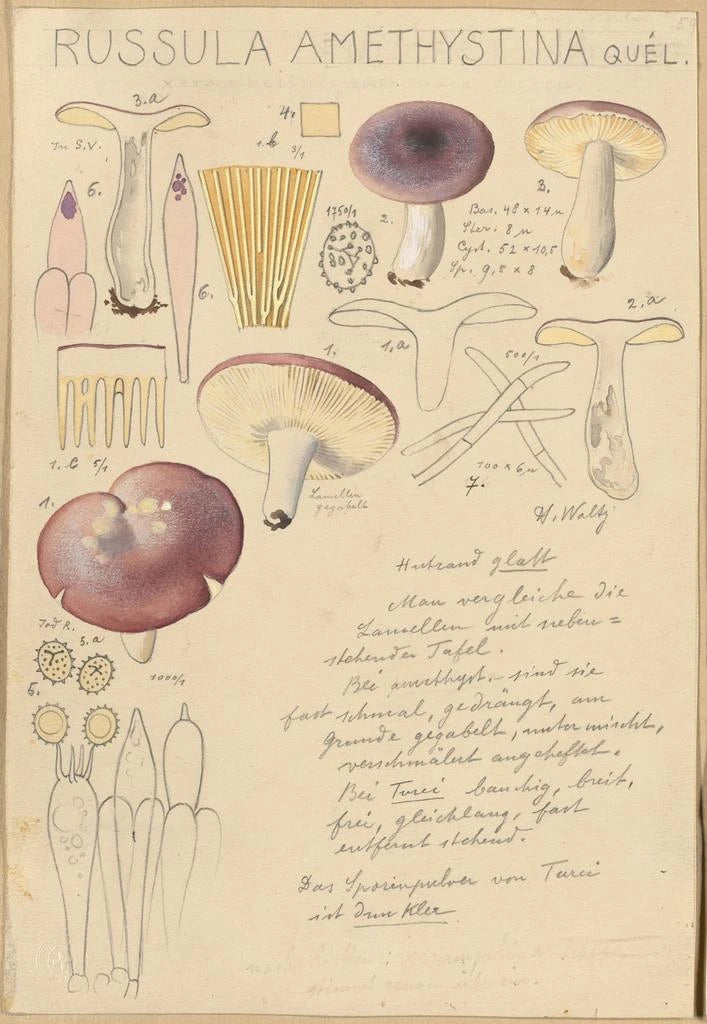 RUSSULA AMETHYSTINA QUÉL.
3.a
In S.V.
4.
1.b 3/1
6.
6.
1750/1
2.
3.
Bas. 48 x 14 µ
Ster. 8 µ
Cyst. 52 x 10,5
Sp. 9,5 x 8
1.a
2.a
1.
500/1
100 x 6 µ
7.
1.c 5/1
Lamellen
gegabelt
H. Waltz
1.
Hutrand glatt
Man vergleiche die
Lamellen mit neben=
stehender Tafel.
Bei amethyst. sind sie
fast schmal, gedrängt, am
Grunde gegabelt, untermischt,
verschmälert angeheftet.
Bei Turci bauchig, breit,
frei, gleichlang, fast
entfernt stehend.
Das Sporenpulver von Turci
ist dunkler
Jod R.
5.a
1000/1
nach
stimmt genau überein.